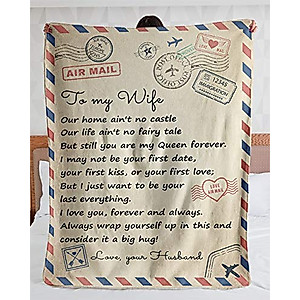 AIR MAIL
LOVE MAIL
12345
IMMIGRATION
To my Wife
Our home ain't no castle
Our life ain't no fairy tale
But still you are my Queen forever.
I may not be your first date,
your first kiss, or your first love;
But I just want to be your
last everything.
I love you, forever and always.
Always wrap yourself up in this and
consider it a big hug!
Love, your Husband